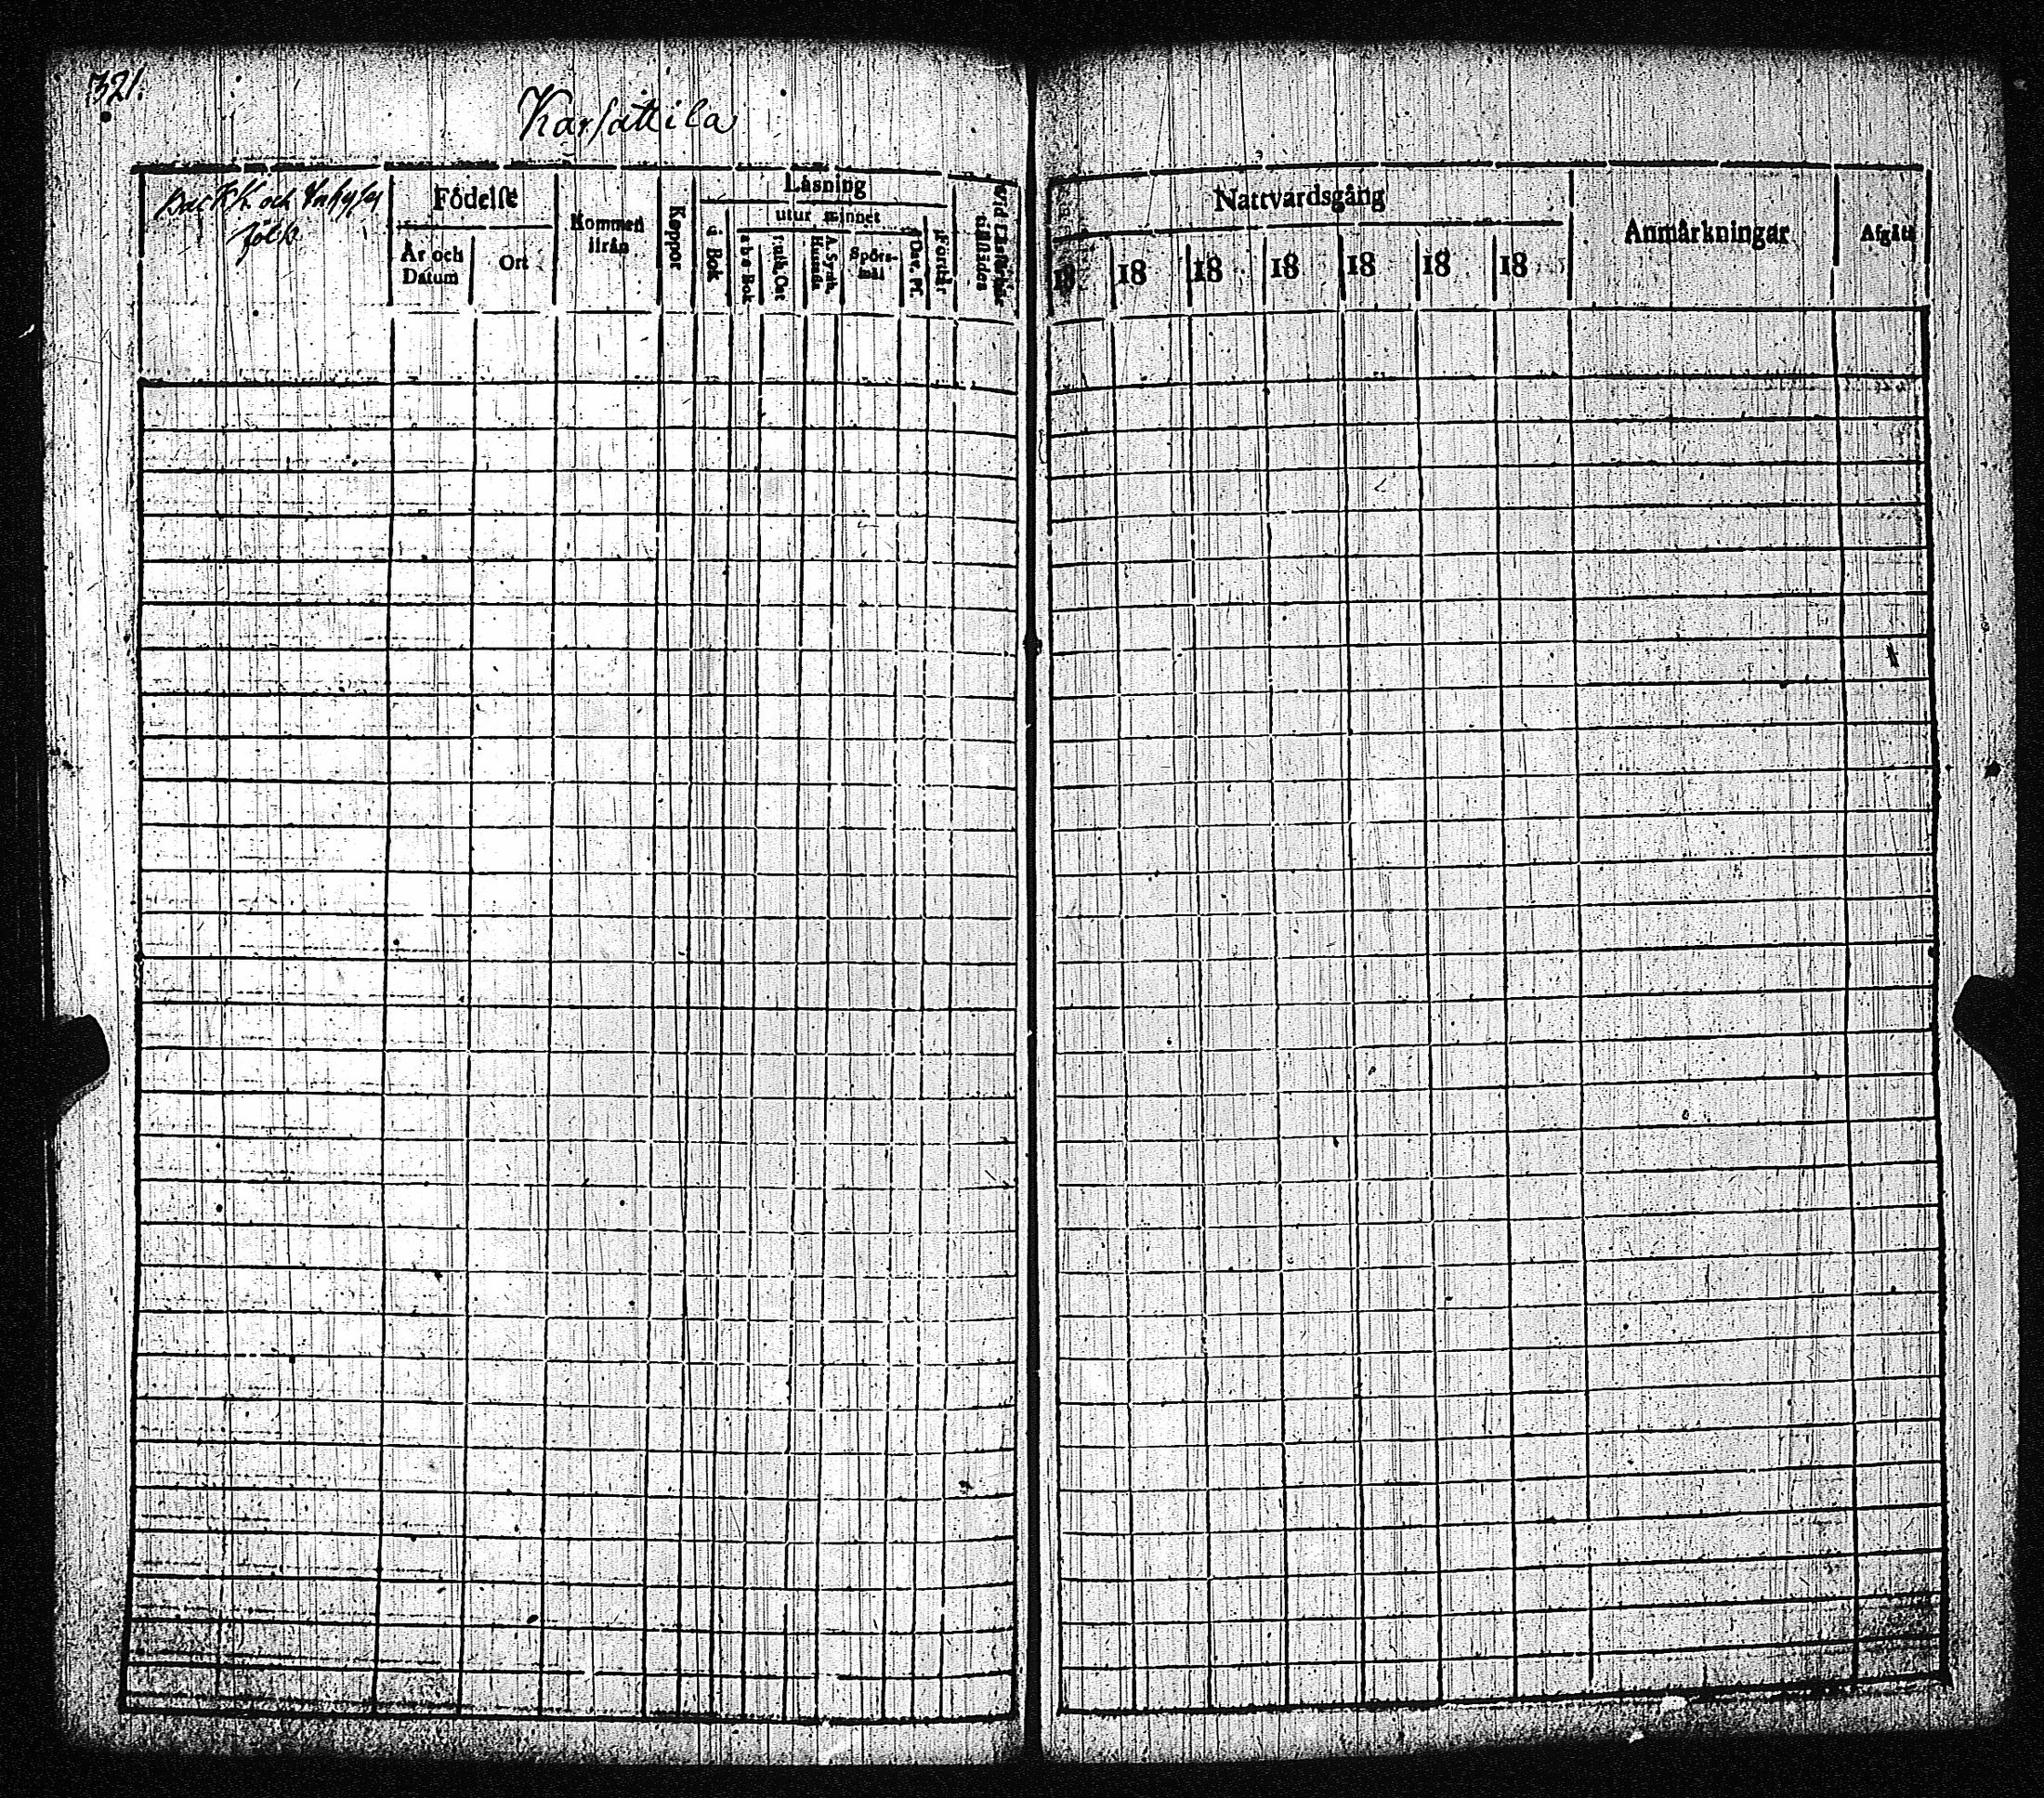 321.
Karsattila
Backst. och Inhyses
folk
Födelse
År och
Datum
Ort
Kommen
ifrån
Koppor
Läsning
utur minnet
i Bok
a b c Bok
Luth. Cat
A. Symb.
Hustafla
Spörs-
mål
Dav. Ps.
Förstår
vid Läsförhör
tillstädes
Nattvardsgång
18 18 18 18 18 18 18
Anmärkningar
Afgått